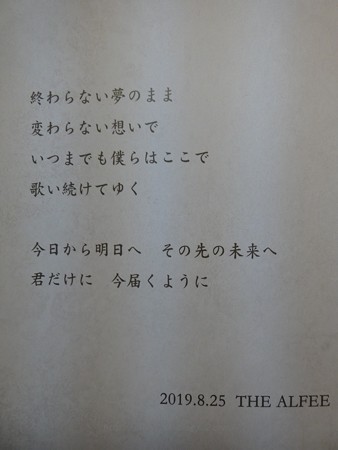 終わらない夢のまま
変わらない想いで
いつまでも僕らはここで
歌い続けてゆく
今日から明日へ　その先の未来へ
君だけに　今届くように
2019.8.25 THE ALFEE